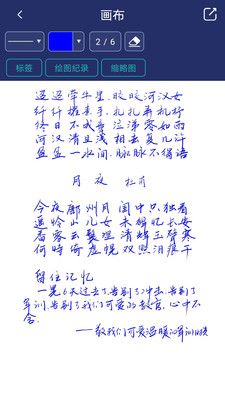 画布
2 / 6
标签 绘图纪录 缩略图
迢迢牵牛星,皎皎河汉女
纤纤擢素手,扎扎弄机杼
终日不成章 泣涕零如雨
河汉清且浅 相去复几许
盈盈一水间,脉脉不得语
月夜 杜甫
今夜鄜州月 闺中只独看
遥怜小儿女 未解忆长安
香雾云鬟湿 清辉玉臂寒
何时倚虚幌 双照泪痕干
留住记忆
一晃6天过去了,告别了,告别了
军训,告别了我们可爱的教官,心中不
舍.
——致我们可爱温暖的军训